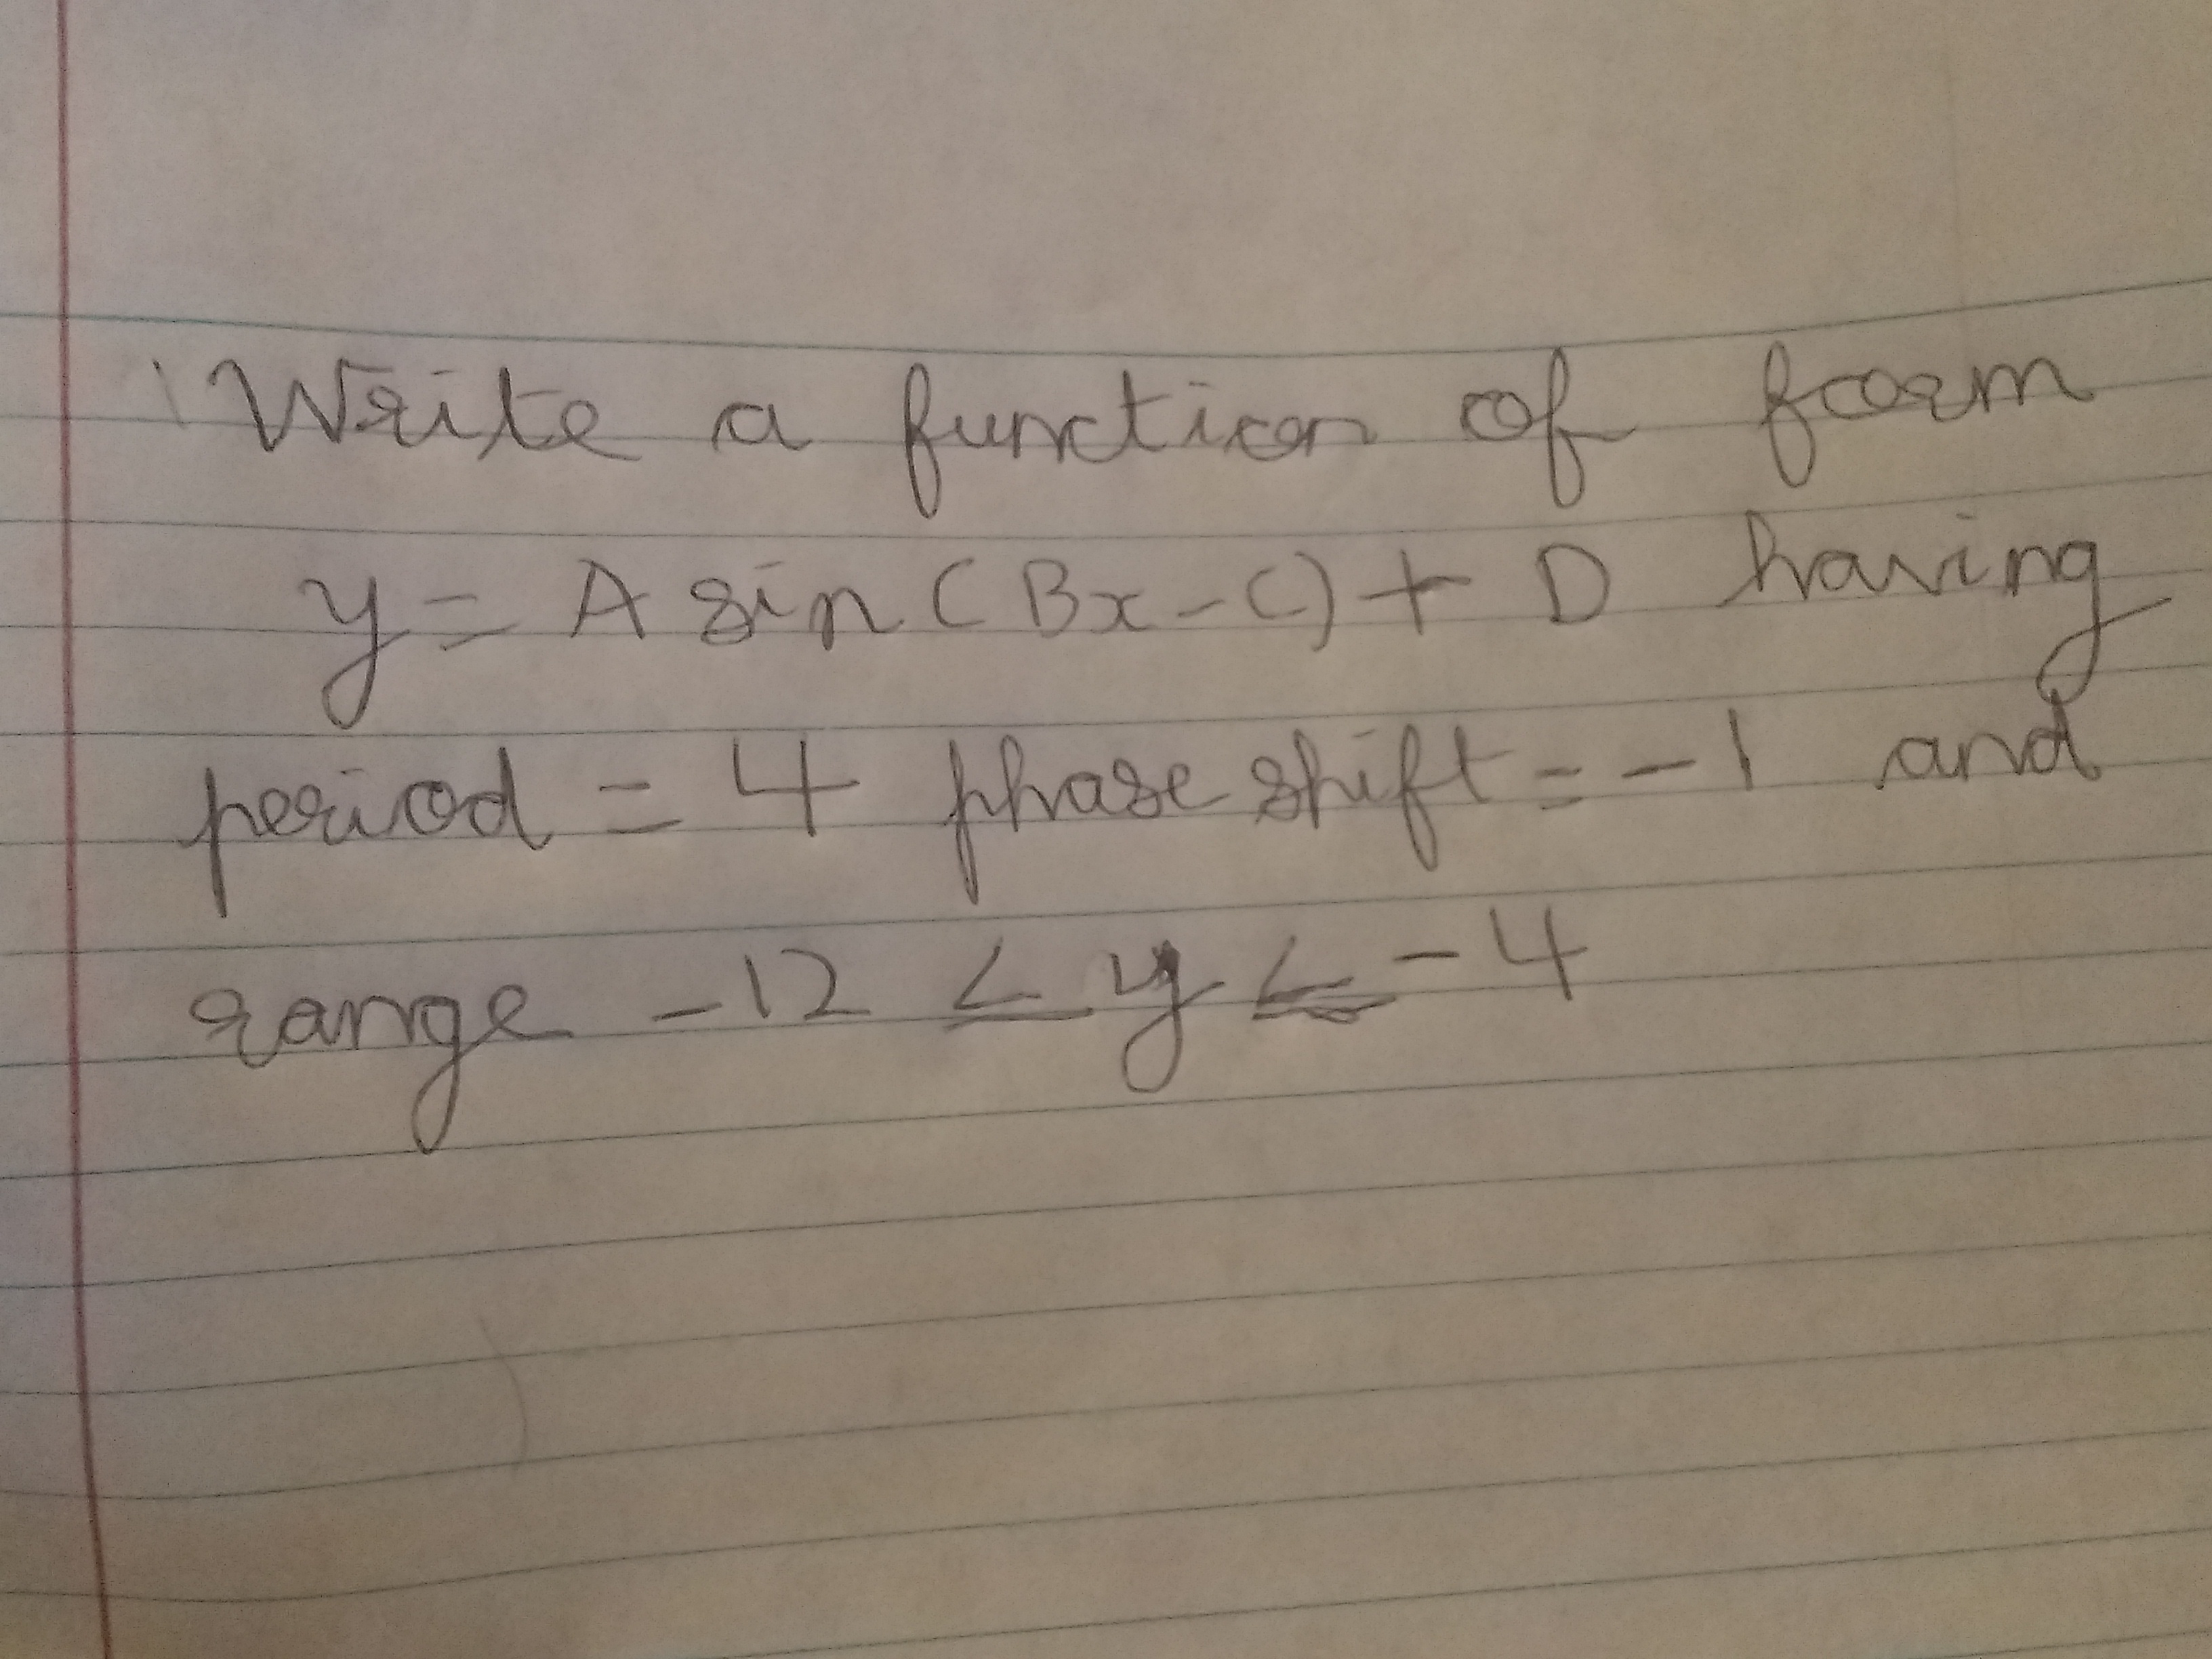 Write a function of form
y = A sin(Bx - C) + D having
period = 4 phase shift = -1 and
range -12 ≤ y ≤ -4